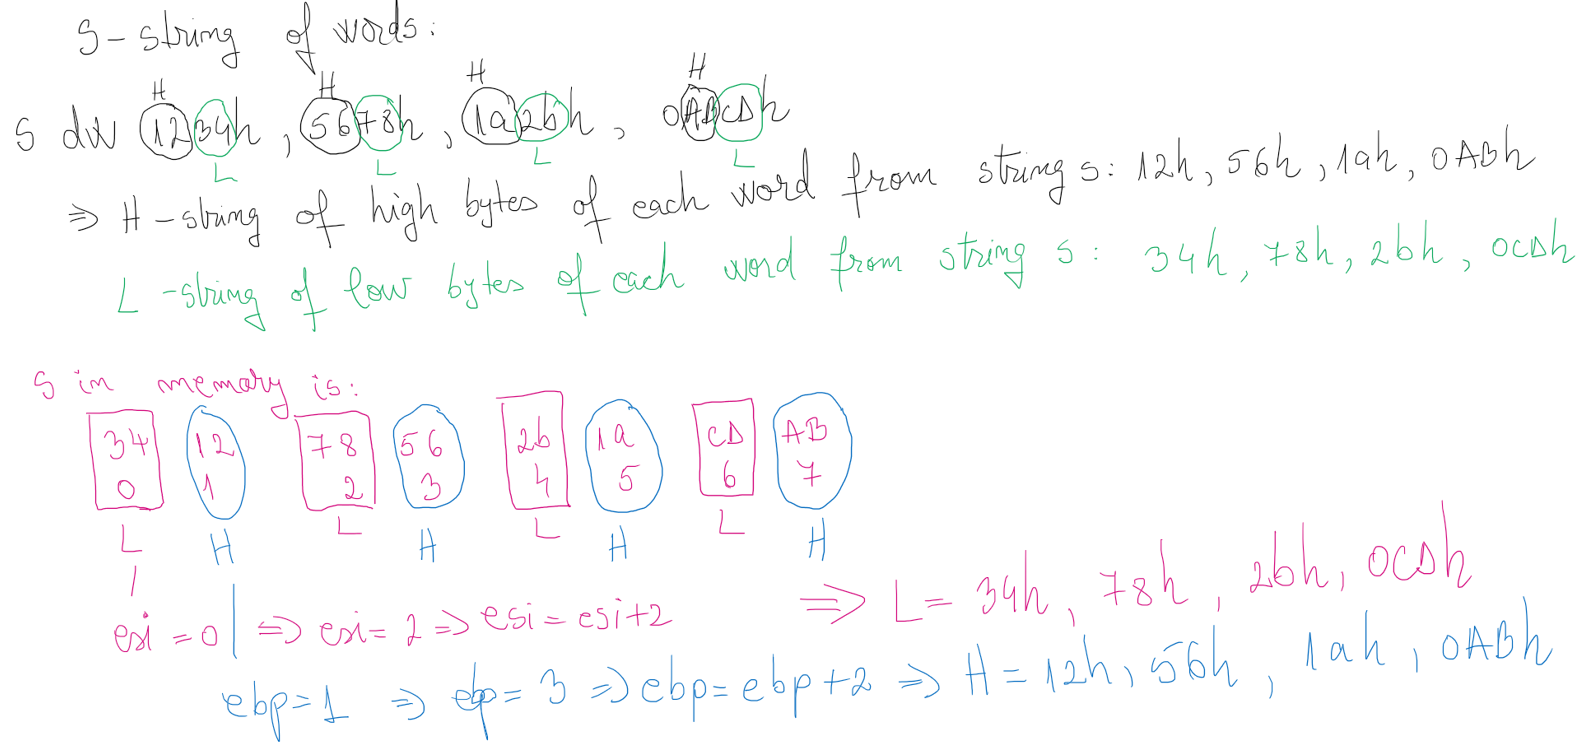 S - string of words:
H H H H
S dw 1234h, 5678h, 1a2bh, 0ABCDh
L L L L
⇒ H - string of high bytes of each word from string s: 12h, 56h, 1ah, 0ABh
L - string of low bytes of each word from string s: 34h, 78h, 2bh, 0CDh
S in memory is:
34 12 78 56 2b 1a CD AB
0 1 2 3 4 5 6 7
L H L H L H L H
esi = 0 | ⇒ esi = 2 ⇒ esi = esi+2 ⇒ L = 34h, 78h, 2bh, 0CDh
ebp = 1 ⇒ ebp = 3 ⇒ ebp = ebp + 2 ⇒ H = 12h, 56h, 1ah, 0ABh